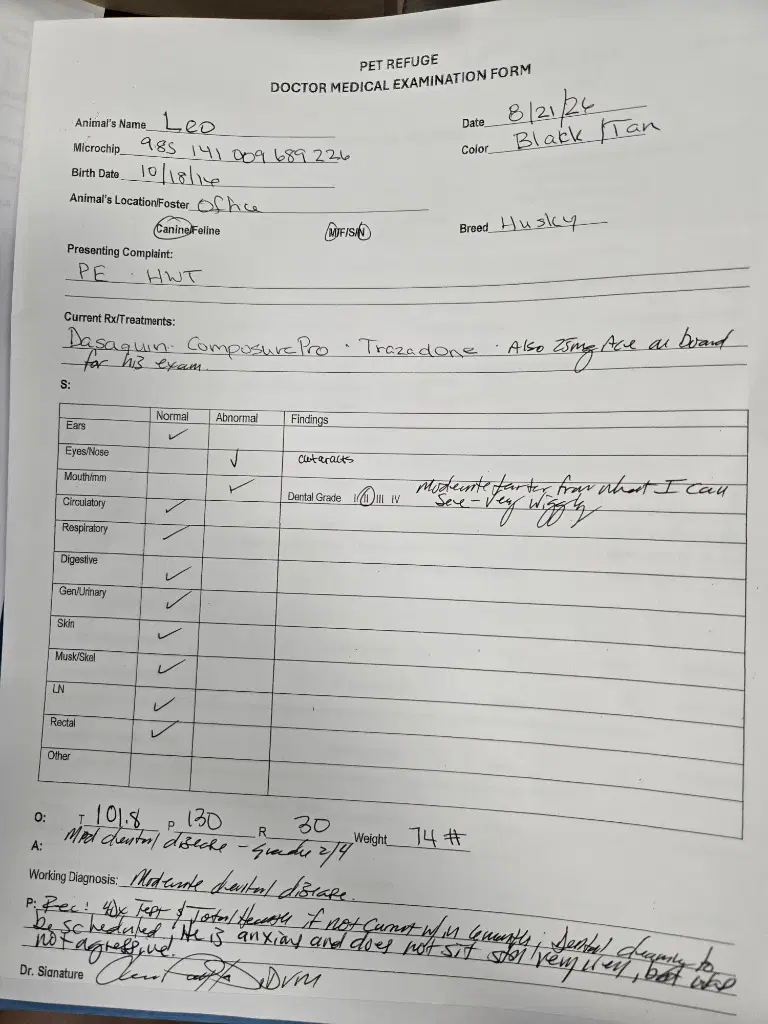 PET REFUGE
DOCTOR MEDICAL EXAMINATION FORM
Animal's Name Leo
Date 8/21/26
Microchip 985 141 009 689 226
Color Black/Tan
Birth Date 10/18/16
Animal's Location/Foster Office
Canine/Feline M/F/S/N Breed Husky
Presenting Complaint:
PE · HWT
Current Rx/Treatments:
Dasaquin · ComposurePro · Trazadone · Also 25mg Ace on board
for his exam.
S:
Normal Abnormal Findings
Ears ✓
Eyes/Nose ✓ cataracts
Mouth/mm ✓ Dental Grade I/II/III IV Moderate tarter from what I can
see - very wiggly
Circulatory ✓
Respiratory ✓
Digestive ✓
Gen/Urinary ✓
Skin ✓
Musk/Skel ✓
LN ✓
Rectal ✓
Other
O: T 101.8 P 130 R 30 Weight 74 #
A: Mod dental disease - grade 2/4
Working Diagnosis: Moderate dental disease.
P: Rec: 4Dx Test & Total if not current w/in 6 months; Dental cleaning to
be scheduled! He is anxious and does not sit still very well, but was
not agressive!
Dr. Signature DVM